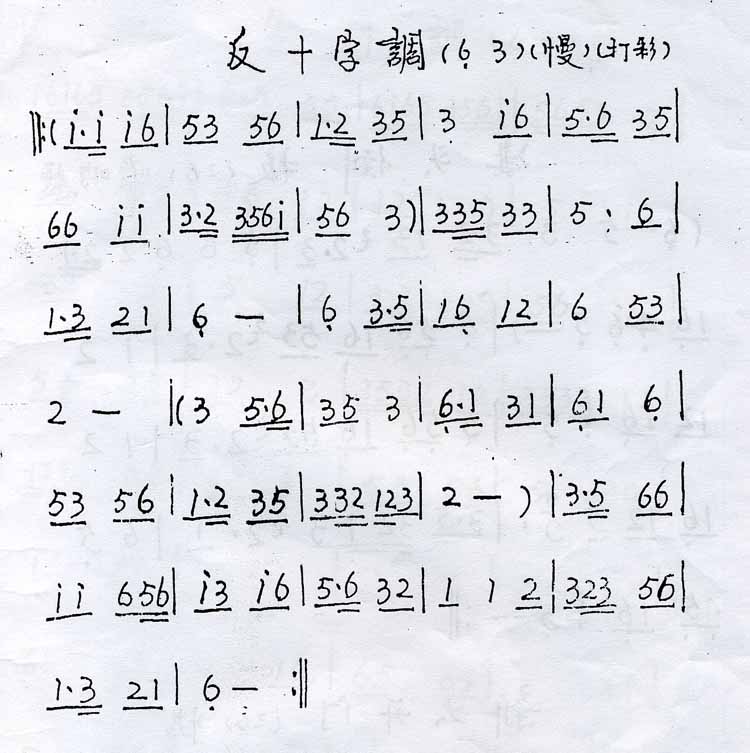 反十字調(6̣ 3)(慢)(打彩)
‖:(i·i i6|53 56|1·2 35|3 i6|5·6 35|
66 ii|3·2 356i|56 3)|335 33|5· 6|
1·3 21|6̣ —|6̣ 3·5|16̣ 12|6 53|
2 —|(3 5·6|35 3|6̣·1 31|6̣1 6̣|
53 56|1·2 35|332 123|2 —)|3·5 66|
ii 656|i3 i6|5·6 32|1 1 2|323 56|
1·3 21|6̣ — :‖